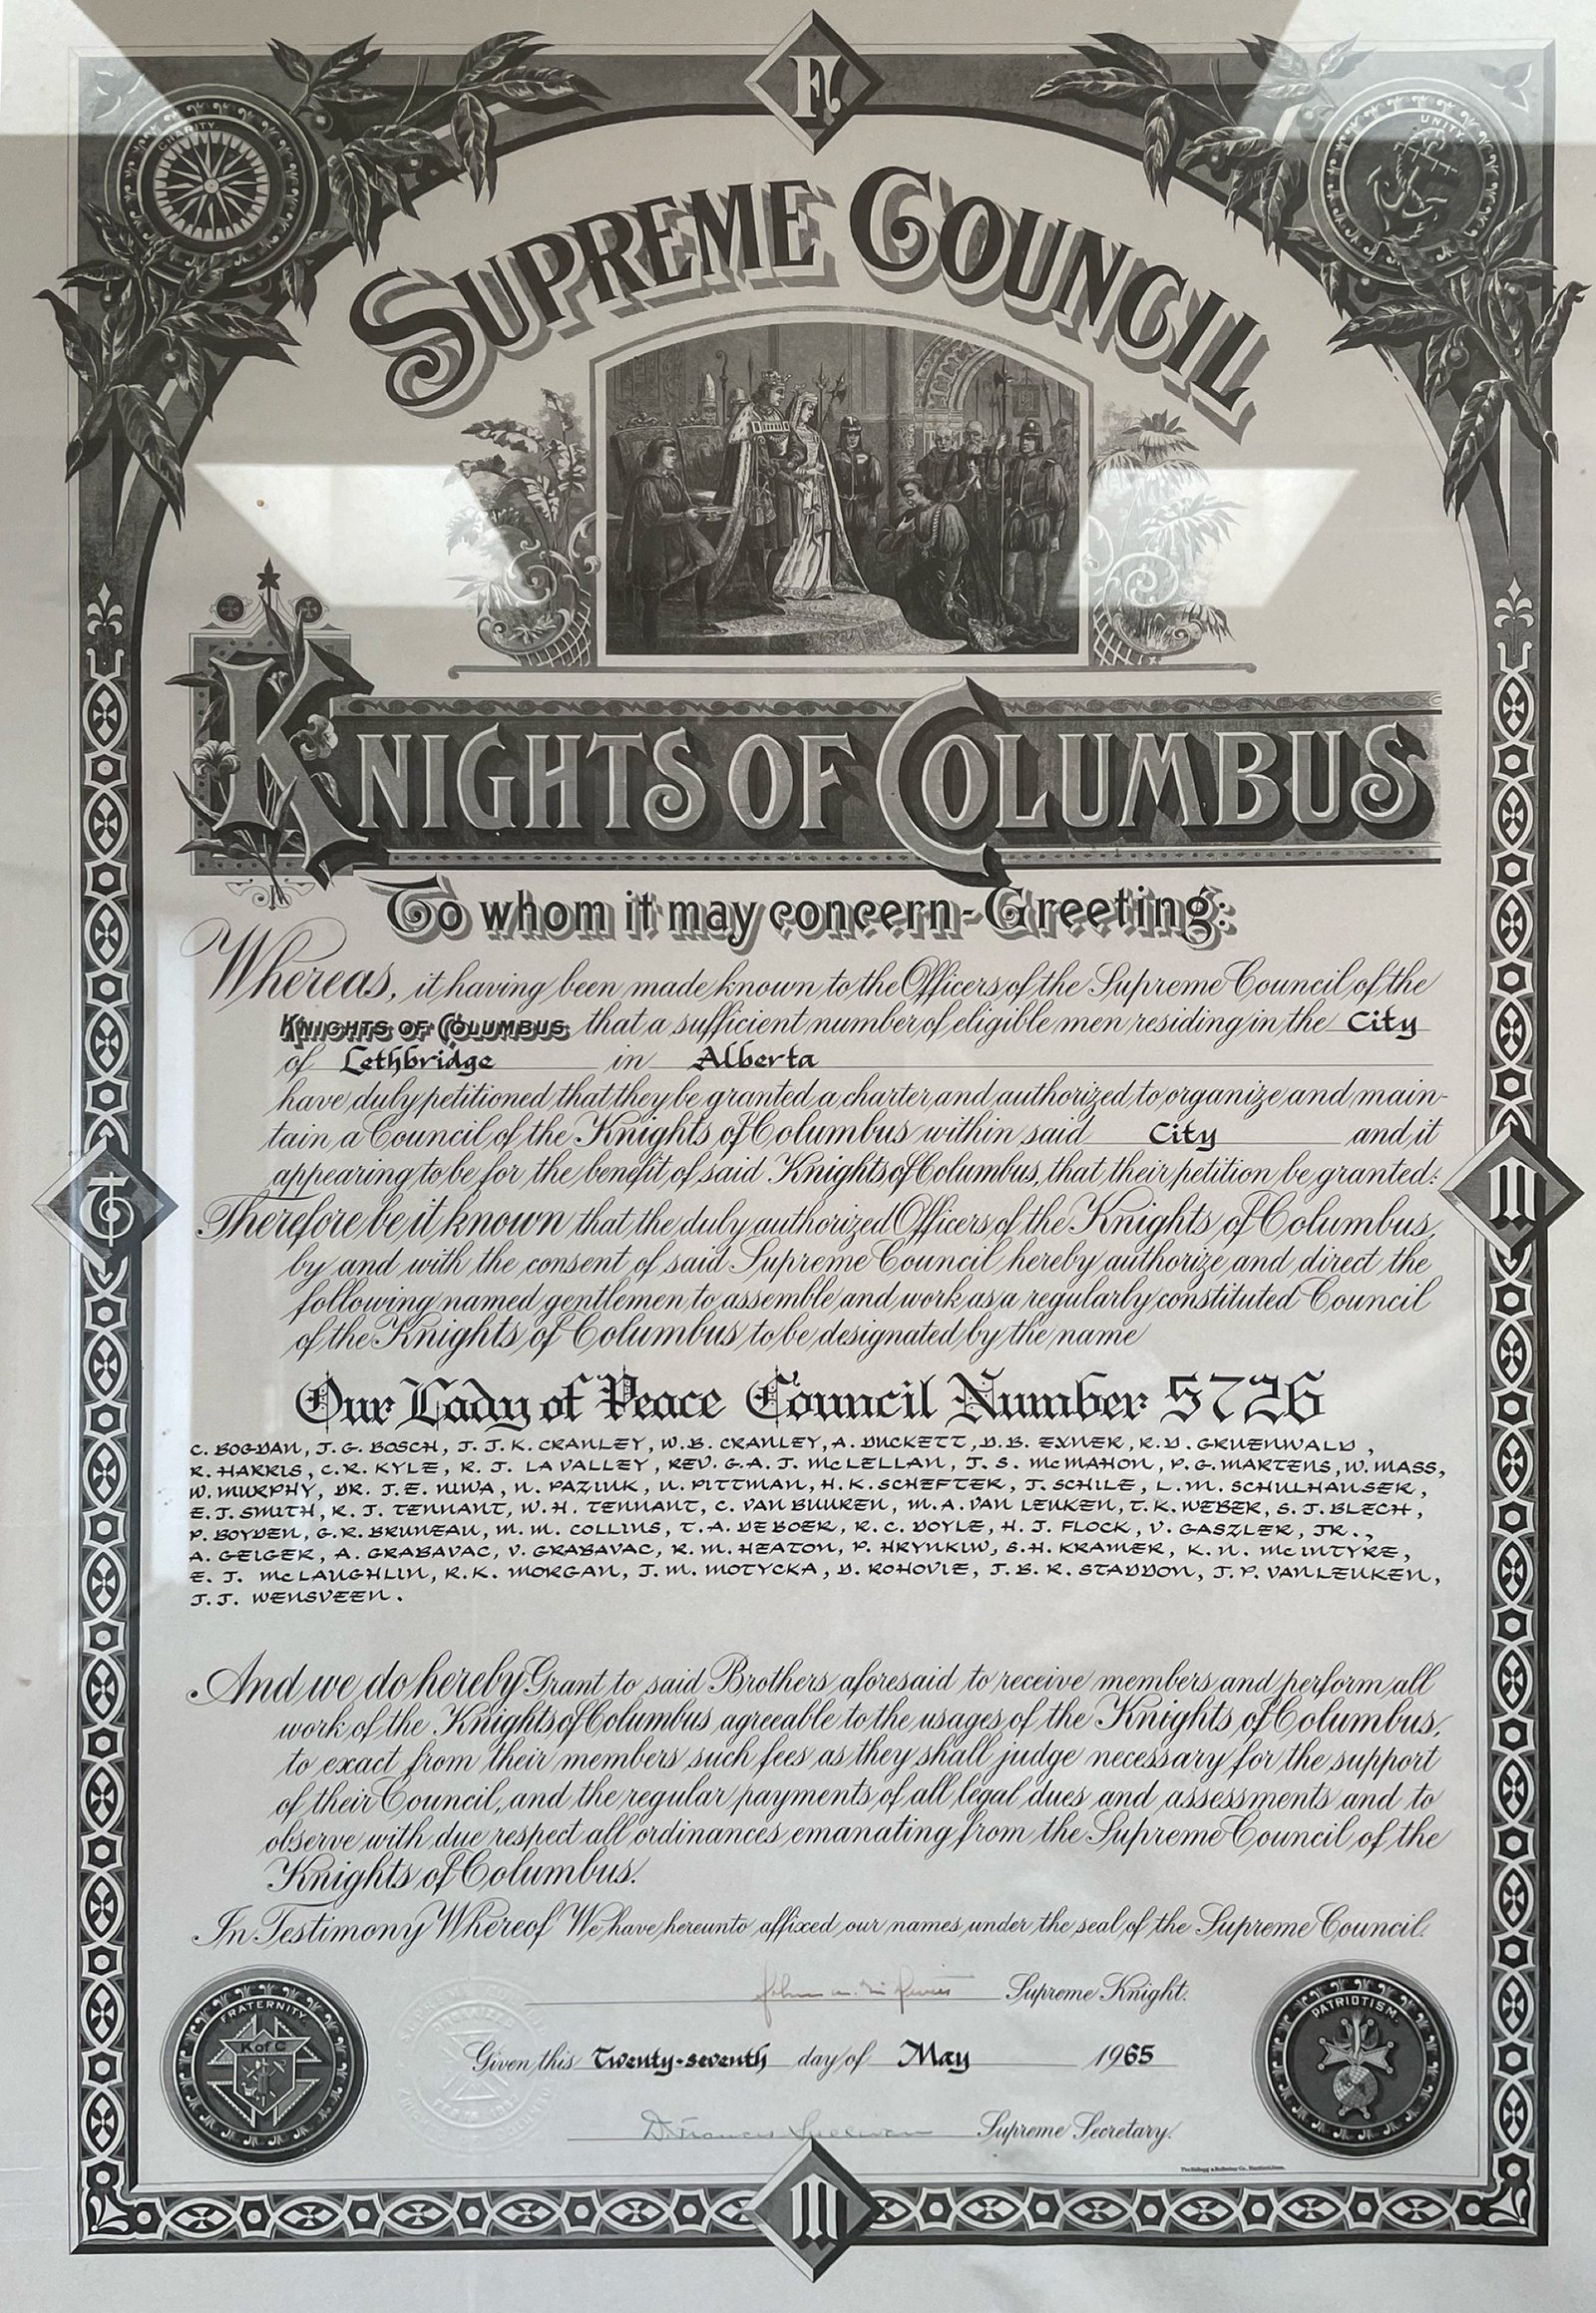 F.
CHARITY
UNITY
SUPREME COUNCIL
KNIGHTS OF COLUMBUS
To whom it may concern-Greeting:
Whereas, it having been made known to the Officers of the Supreme Council of the
KNIGHTS OF COLUMBUS that a sufficient number of eligible men residing in the City
of Lethbridge in Alberta
have duly petitioned that they be granted a charter and authorized to organize and main-
tain a Council of the Knights of Columbus within said City and it
appearing to be for the benefit of said Knights of Columbus, that their petition be granted:
Therefore be it known that the duly authorized Officers of the Knights of Columbus,
by and with the consent of said Supreme Council hereby authorize and direct the
following named gentlemen to assemble and work as a regularly constituted Council
of the Knights of Columbus to be designated by the name
Our Lady of Peace Council Number 5726
C. BOGDAN, J.G. BOSCH, J.J.K. CRANLEY, W.B. CRANLEY, A. DUCKETT, D.B. EXNER, R.D. GRUENWALD,
R. HARRIS, C.R. KYLE, R.J. LAVALLEY, REV. G.A.J. McLELLAN, J.S. McMAHON, P.G. MARTENS, W. MASS,
W. MURPHY, DR. J.E. NIWA, N. PAZIUK, N. PITTMAN, H.K. SCHEFTER, J. SCHILE, L.M. SCHULHAUSER,
E.J. SMITH, R.J. TENNANT, W.H. TENNANT, C. VAN BUUREN, M.A. VAN LEUKEN, T.K. WEBER, S.J. BLECH,
P. BOYDEN, G.R. BRUNEAU, M.M. COLLINS, T.A. DE BOER, R.C. DOYLE, H.J. FLOCK, V. GASZLER, JR.,
A. GEIGER, A. GRABAVAC, V. GRABAVAC, R.M. HEATON, P. HRYNKIW, S.H. KRAMER, K.N. McINTYRE,
E.J. McLAUGHLIN, R.K. MORGAN, J.M. MOTYCKA, D. ROHOVIE, J.B.R. STADDON, J.P. VANLEUKEN,
J.J. WENSVEEN.
And we do hereby Grant to said Brothers aforesaid to receive members and perform all
work of the Knights of Columbus agreeable to the usages of the Knights of Columbus,
to exact from their members such fees as they shall judge necessary for the support
of their Council, and the regular payments of all legal dues and assessments and to
observe with due respect all ordinances emanating from the Supreme Council of the
Knights of Columbus.
In Testimony Whereof We have hereunto affixed our names under the seal of the Supreme Council.
Supreme Knight.
Given this Twenty-seventh day of May 1965
Supreme Secretary.
FRATERNITY
K of C
PATRIOTISM.